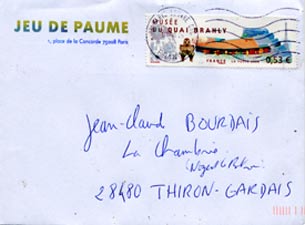 JEU DE PAUME
1, place de la Concorde 75008 Paris
MUSÉE
DU QUAI BRANLY
FRANCE
0,53 €
Jean-Claud BOURDAIS
La Chambrie
28480 THIRON-GARDAIS